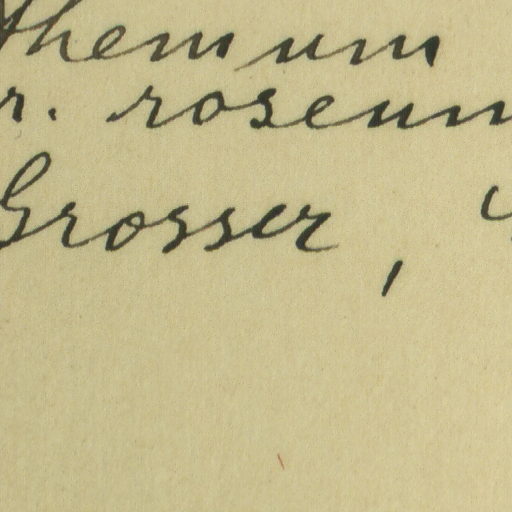 themum
r. roseum
Grosser,